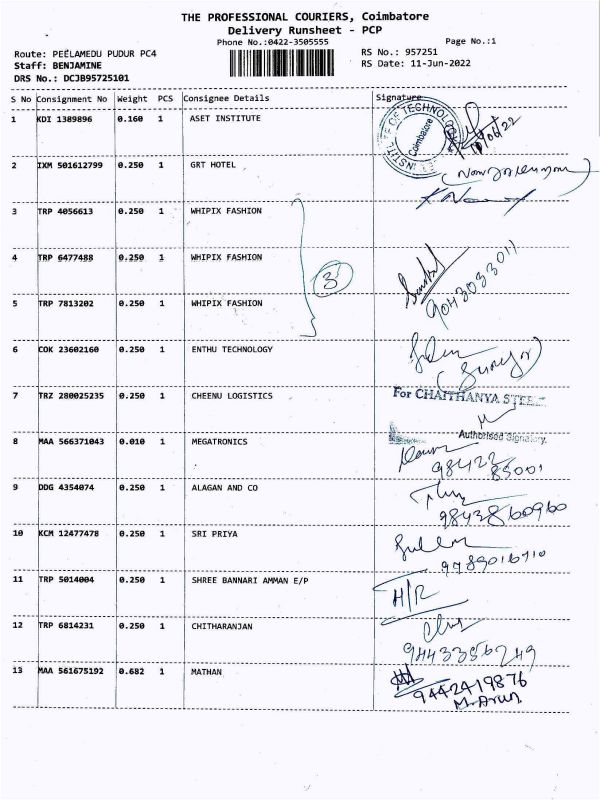 THE PROFESSIONAL COURIERS, Coimbatore
Delivery Runsheet - PCP
Phone No.:0422-3505555
Page No.:1
Route: PEELAMEDU PUDUR PC4
RS No.: 957251
Staff: BENJAMINE
RS Date: 11-Jun-2022
DRS No.: DCJB95725101
S No Consignment No Weight PCS Consignee Details Signature
1 KDI 1389896 0.160 1 ASET INSTITUTE
INSTITUTE OF TECHNOLOGY
Coimbatore
2 IXM 501612799 0.250 1 GRT HOTEL
3 TRP 4056613 0.250 1 WHIPIX FASHION
4 TRP 6477488 0.250 1 WHIPIX FASHION
3
9043033011
5 TRP 7813202 0.250 1 WHIPIX FASHION
6 COK 23602160 0.250 1 ENTHU TECHNOLOGY
7 TRZ 280025235 0.250 1 CHEENU LOGISTICS
For CHAITHANYA STEEL
Authorised Signatory.
8 MAA 566371043 0.010 1 MEGATRONICS
98422
85001
9 DDG 4354074 0.250 1 ALAGAN AND CO
9843860960
10 KCM 12477478 0.250 1 SRI PRIYA
11 TRP 5014004 0.250 1 SHREE BANNARI AMMAN E/P
H/R
12 TRP 6814231 0.250 1 CHITHARANJAN
9443356249
13 MAA 561675192 0.682 1 MATHAN
9442419876
M. Arun